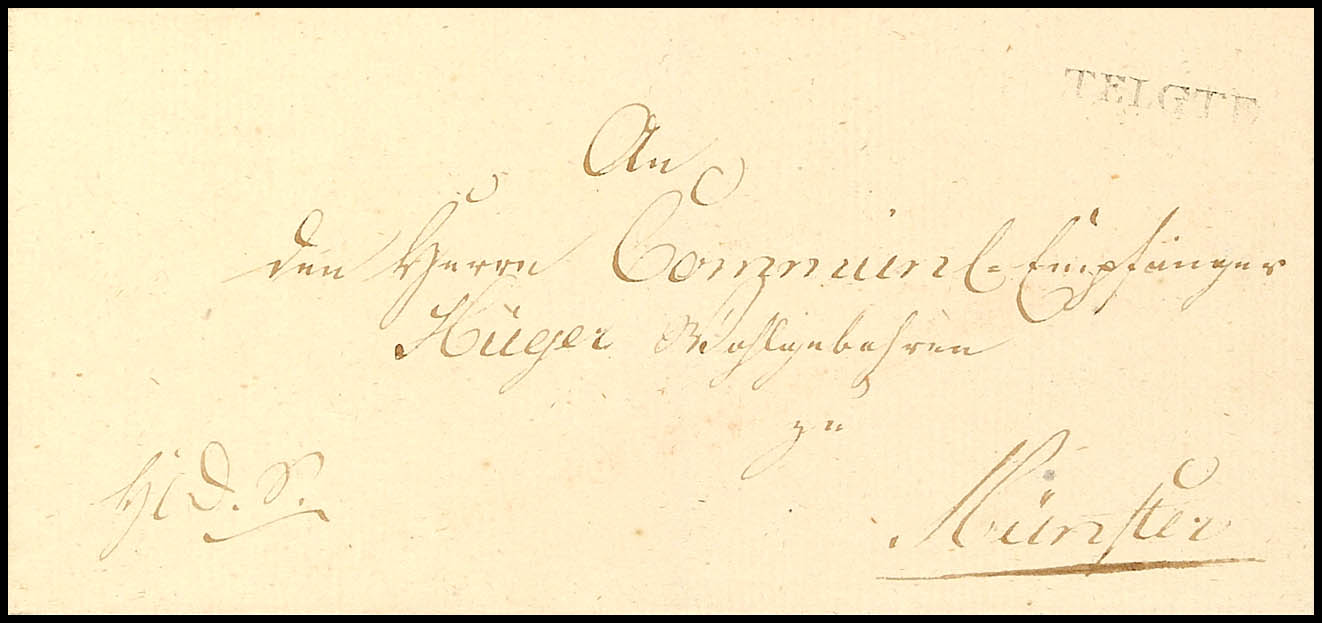 TELGTE
An
den Herrn Communl-Empfänger
Hüger Wohlgebohren
zu
Münster
H. D. S.